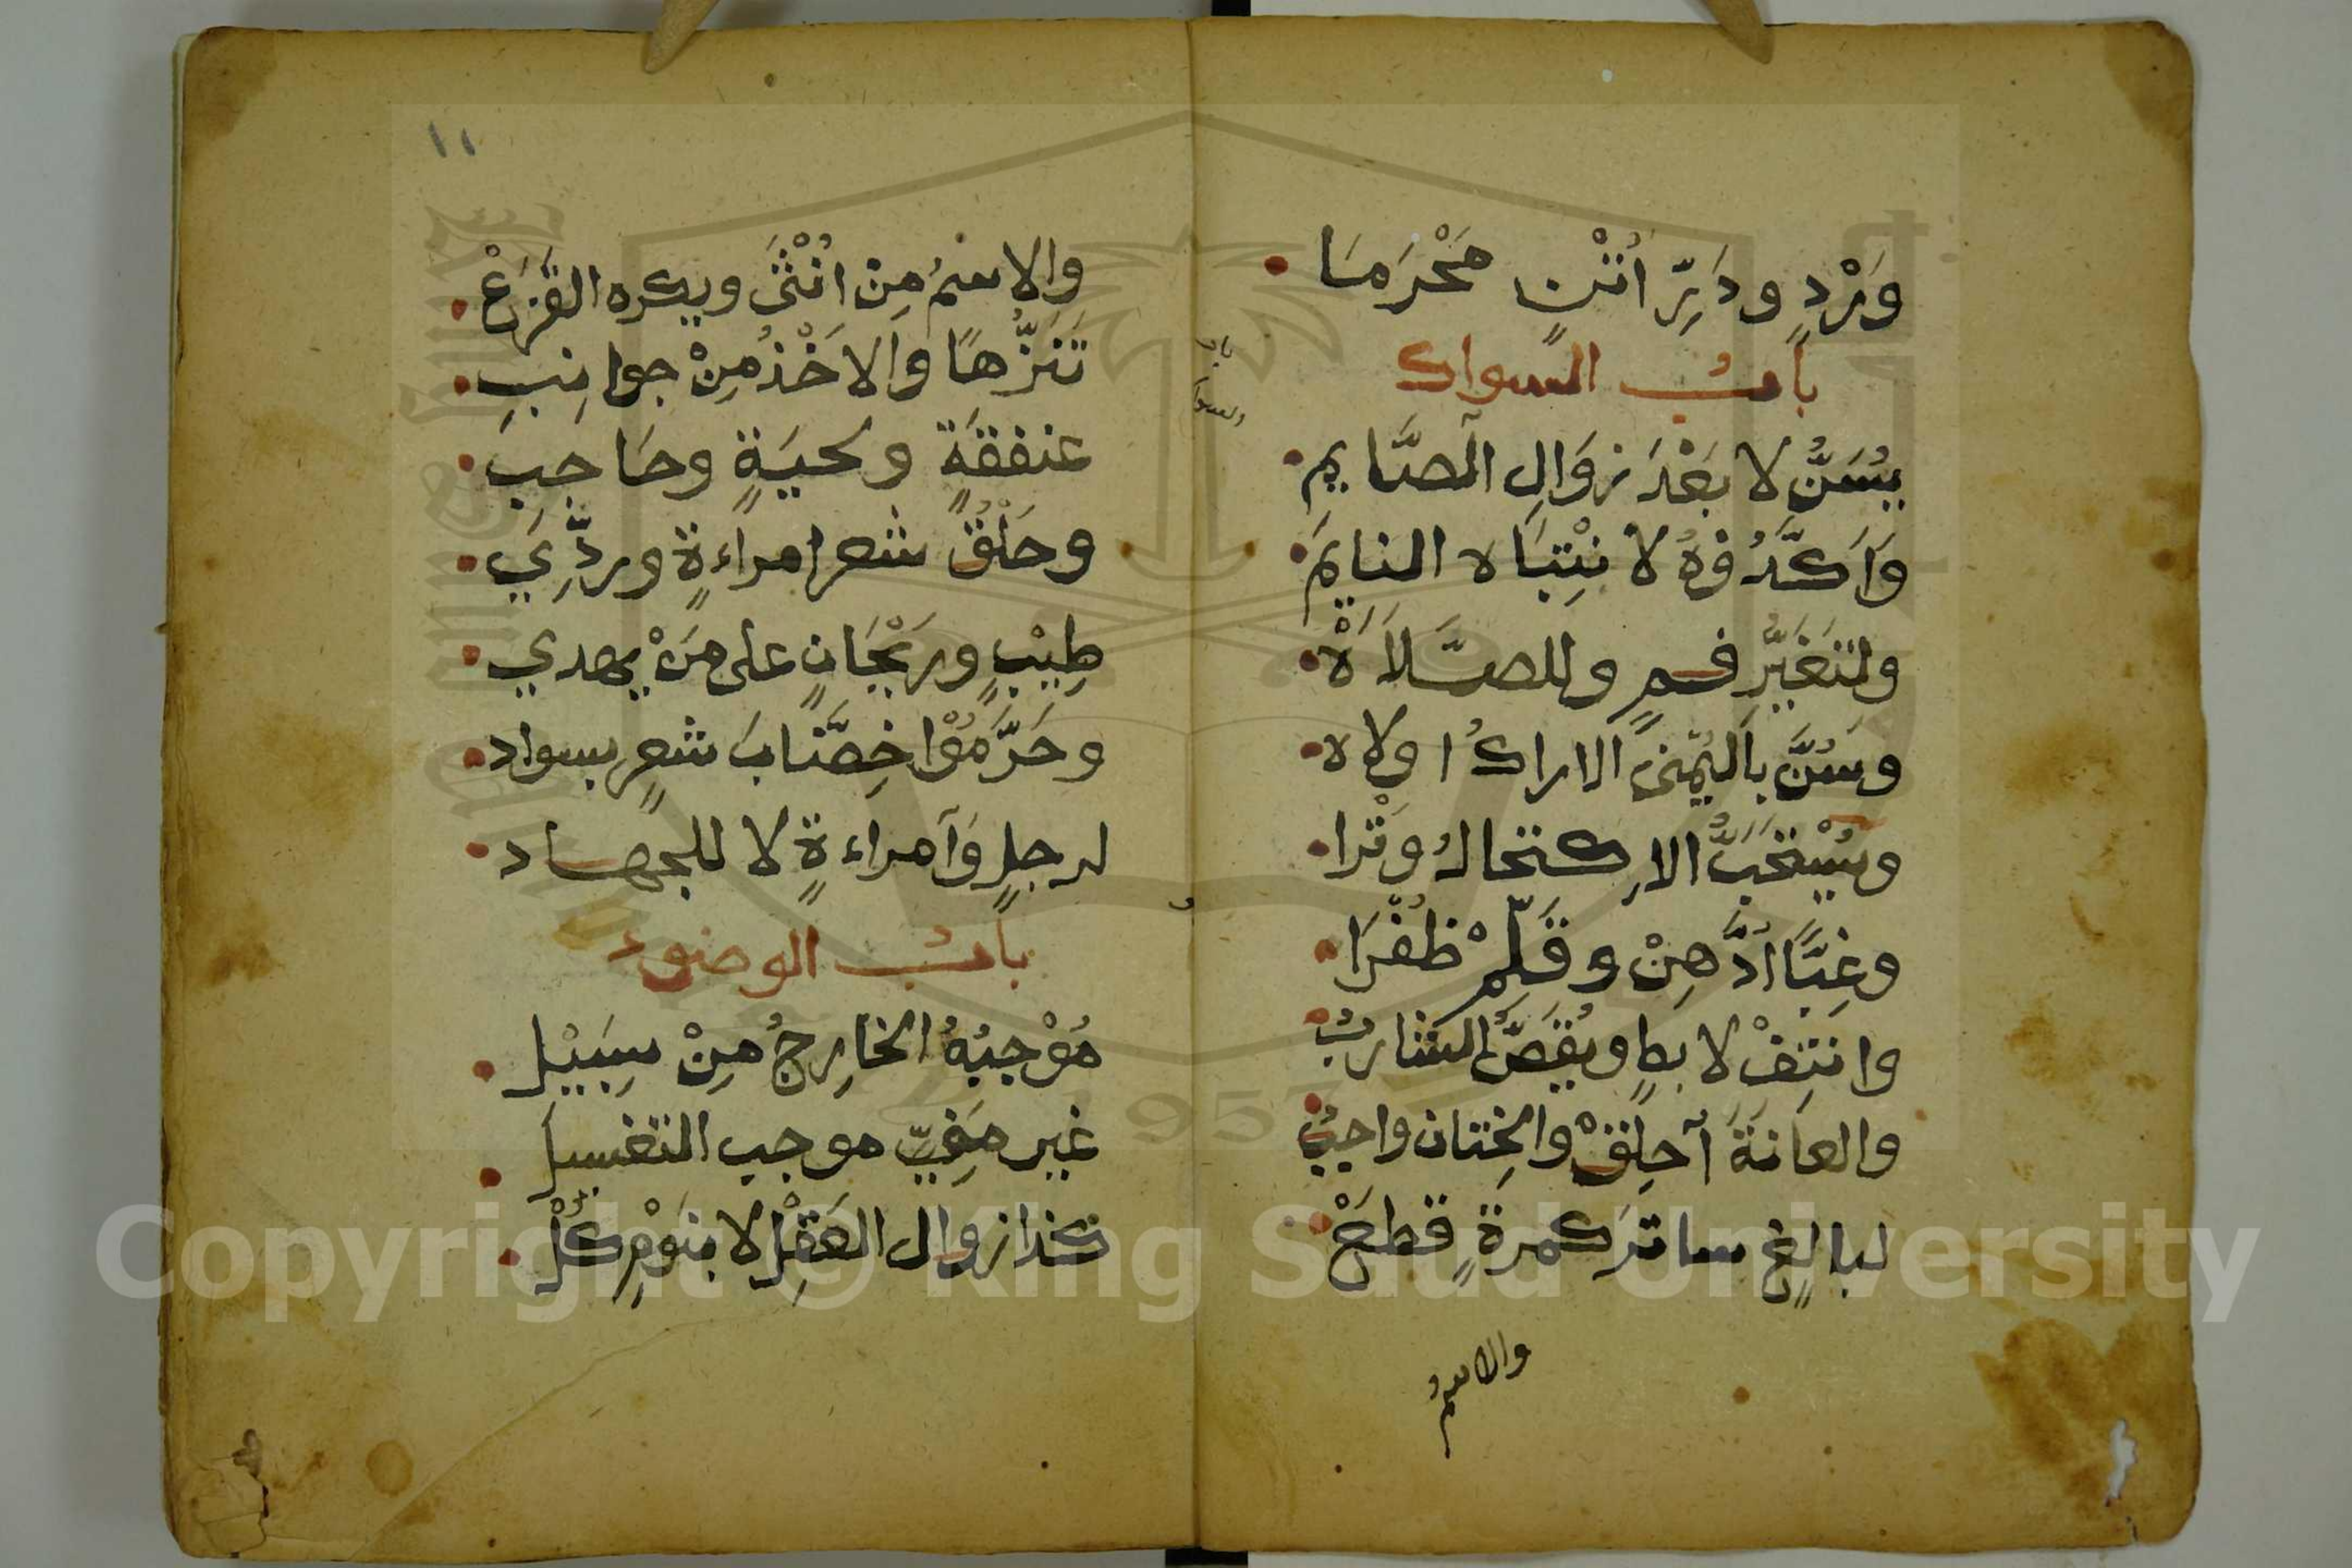 وَبَرْدٍ وحَرِّ اُنْثٍ مَحْرَمَا
بابُ السواك
يُسَنُّ لا بَعْدَ زوَالِ الصَّايمِ
وَاَكَّدُوهُ لا نْتِبَاه النايمِ
ولتَغَيُّرِ فمٍ وللصَّلاَة
وسُنَّ بِاليُمْنى الاراكُ اولاه
ويُسْتَحَبُّ الاِكتحالُ وَتْرا
وغِبًّا ادَّهِنْ وقَلِّمْ ظُفْرَا
وانتِفْ لابطٍ ويُقَصُّ الشاربُ
والعانَةَ اَحلِقْ والخِتان واجبُ
لبالغٍ ساتر كمرةٍ قطعْ
والاسمُ
باب
السواك
١١
والاِسْمُ مِن انْثَى ويكره القَزَعْ
تَنَزُّهًا والاَخْذُ مِنْ جوانِبِ
عنفقةٍ ولحيَةٍ وحَاجِبِ
وحَلْقُ شعر امراءةٍ وردِّي
طِيْبٍ وريْحَانٍ على مَنْ يهدي
وحَرَّمُوْا خِضَابَ شعرٍ بسواد
لرجلٍ وَاَمراءةٍ لا للجهاد
بابُ الوضوء
مُوْجبُهُ الخارِجُ مِنْ سبِيْل
غير مَنِيّ موجب التغسيل
كذا زوال العَقْلِ لا بنَوْمٍ كُلْ
Copyright © King Saud University
1957